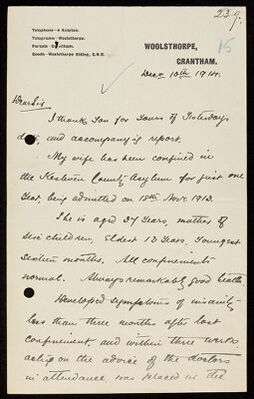 23 9.
Telephone—4 Knipton.
Telegrams—Woolsthorpe.
Parcels—
Goods—Woolsthorpe Siding, G.N.R.
15
WOOLSTHORPE,
GRANTHAM.
Decr 10th 1914.
Dear Sir
I thank you for yours of Yesterdays
date, and accompanying report.
My wife has been confined in
the Kesteven County Asylum for just one
Year, being admitted on Novr 1913.
She is aged 37 Years, mother of
children, Eldest 13 Years, Youngest
months. All confinements
normal. Always remarkably good health
Developed symptoms of insanity
less than three months after last
confinement, and within three weeks
acting on the advice of the doctors
in attendance, was placed in the